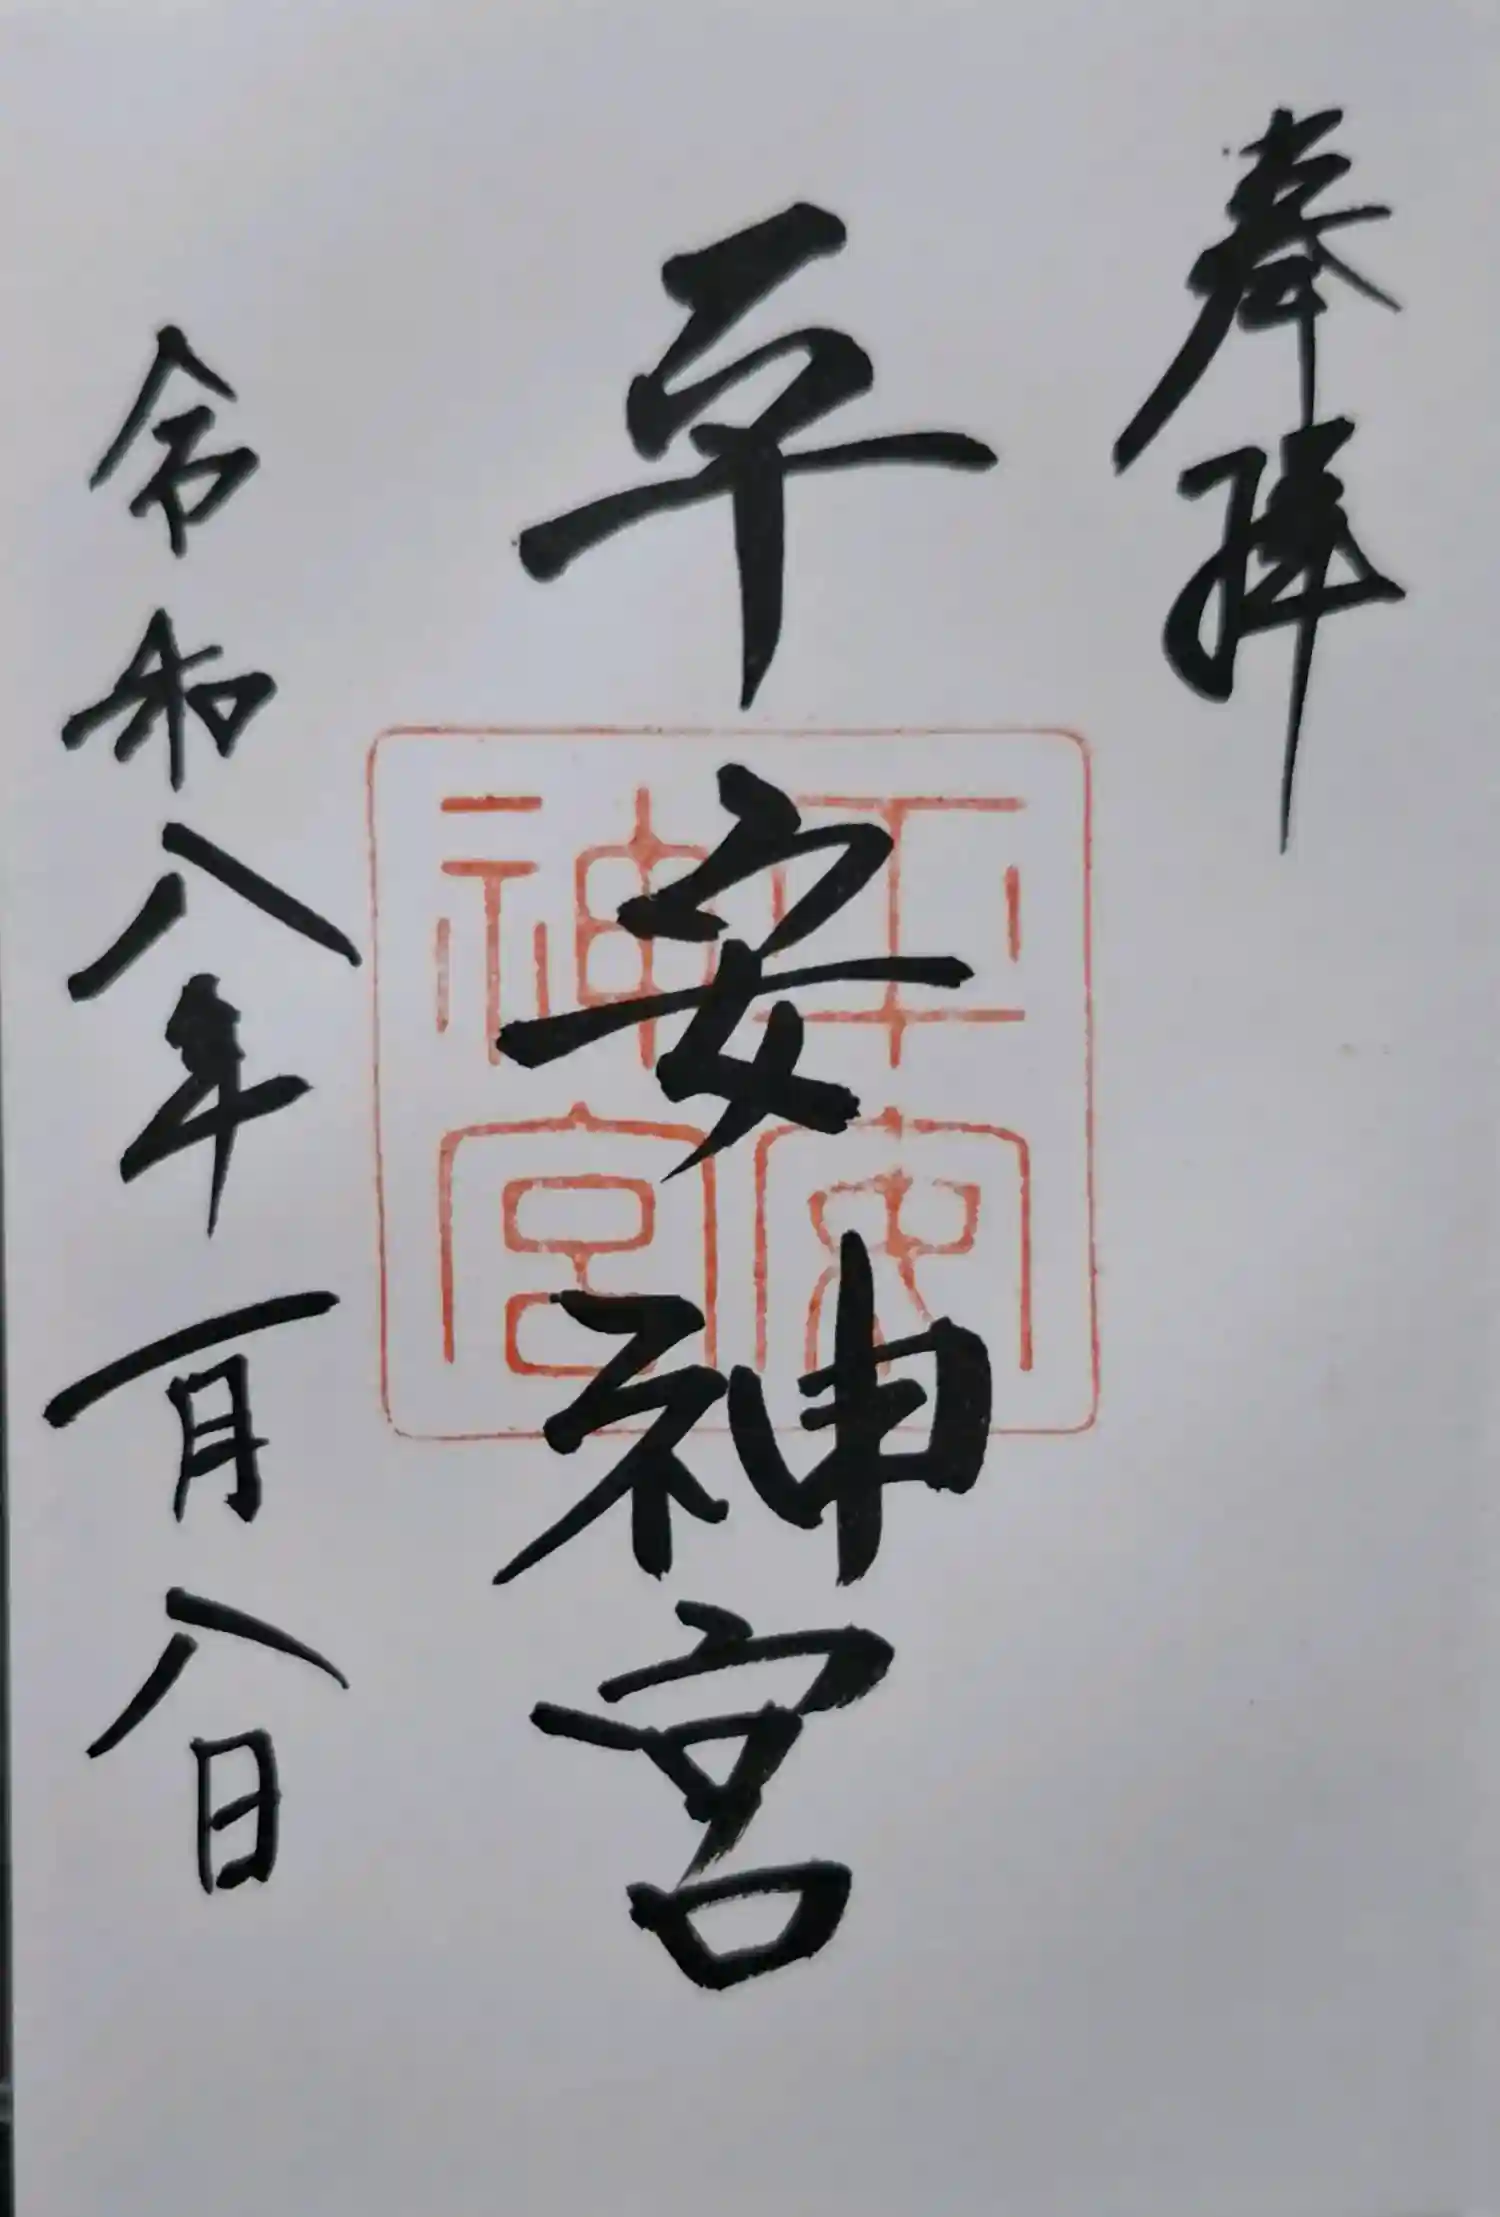 奉拝
平安神宮
平安神宮
令和八年一月八日